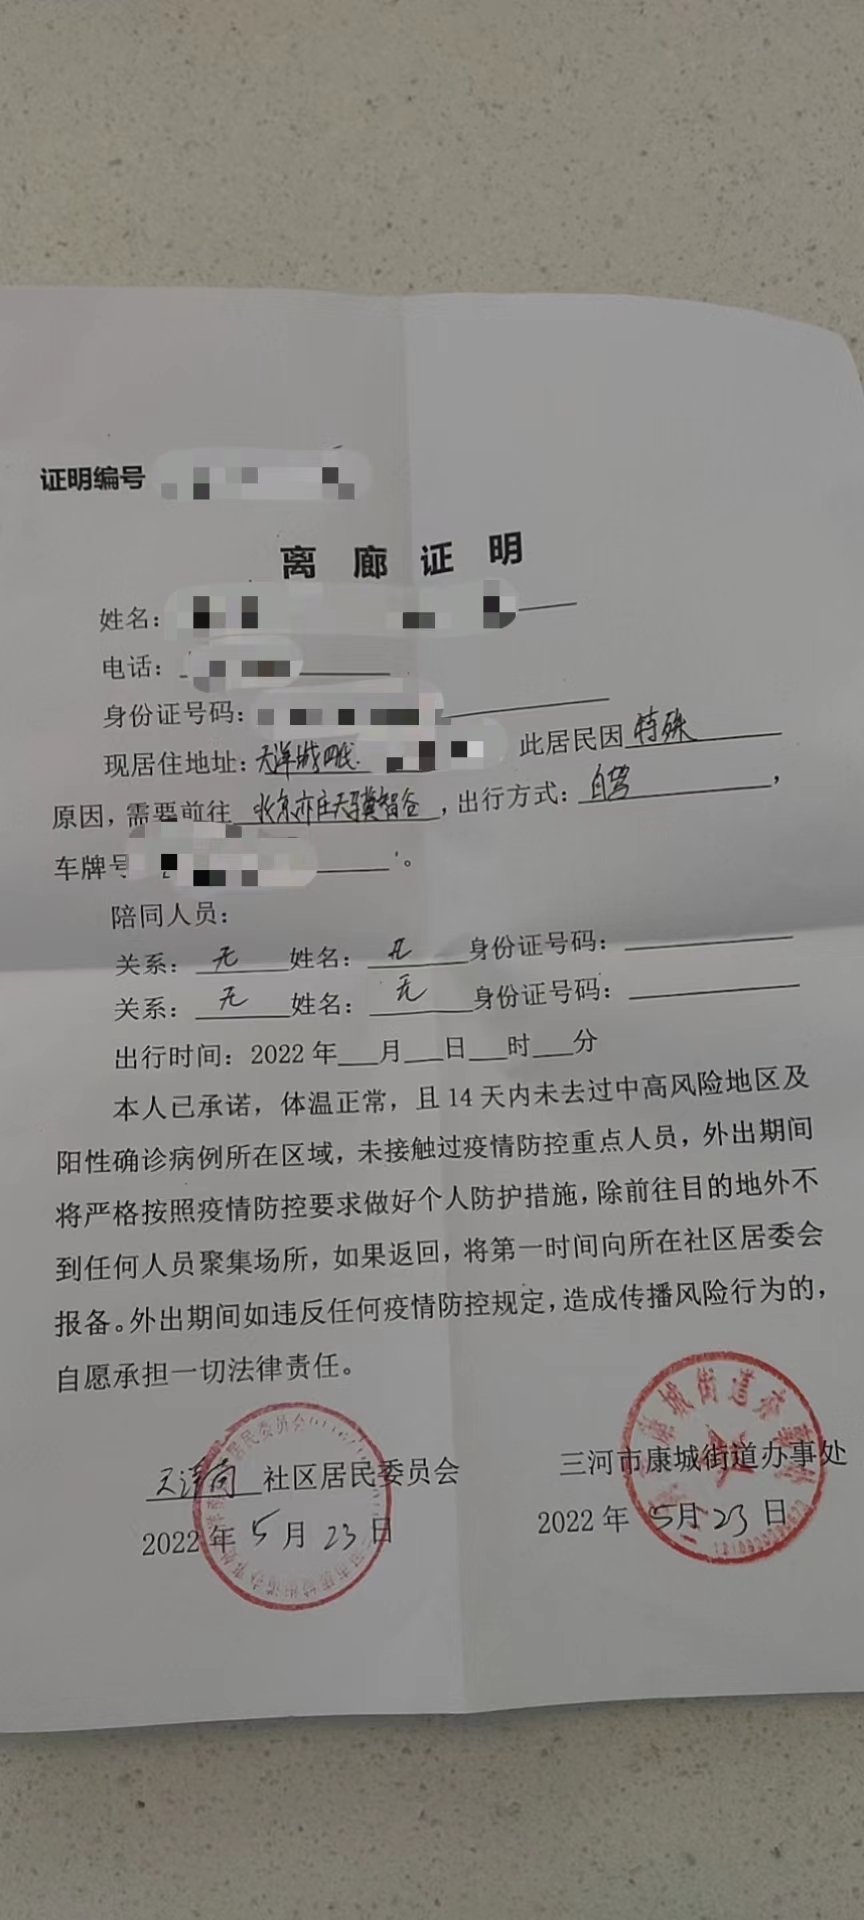 证明编号
离廊证明
姓名:
电话:
身份证号码:
现居住地址:天洋城四代 此居民因特殊
原因,需要前往北京亦庄天骥智谷,出行方式:自驾,
车牌号 。
陪同人员:
关系:无 姓名:无 身份证号码:
关系:无 姓名:无 身份证号码:
出行时间:2022年___月___日___时___分
本人已承诺,体温正常,且14天内未去过中高风险地区及
阳性确诊病例所在区域,未接触过疫情防控重点人员,外出期间
将严格按照疫情防控要求做好个人防护措施,除前往目的地外不
到任何人员聚集场所,如果返回,将第一时间向所在社区居委会
报备。外出期间如违反任何疫情防控规定,造成传播风险行为的,
自愿承担一切法律责任。
社区居民委员会 三河市康城街道办事处
2022年5月23日 2022年5月23日
居民委员会
康城街道办事处